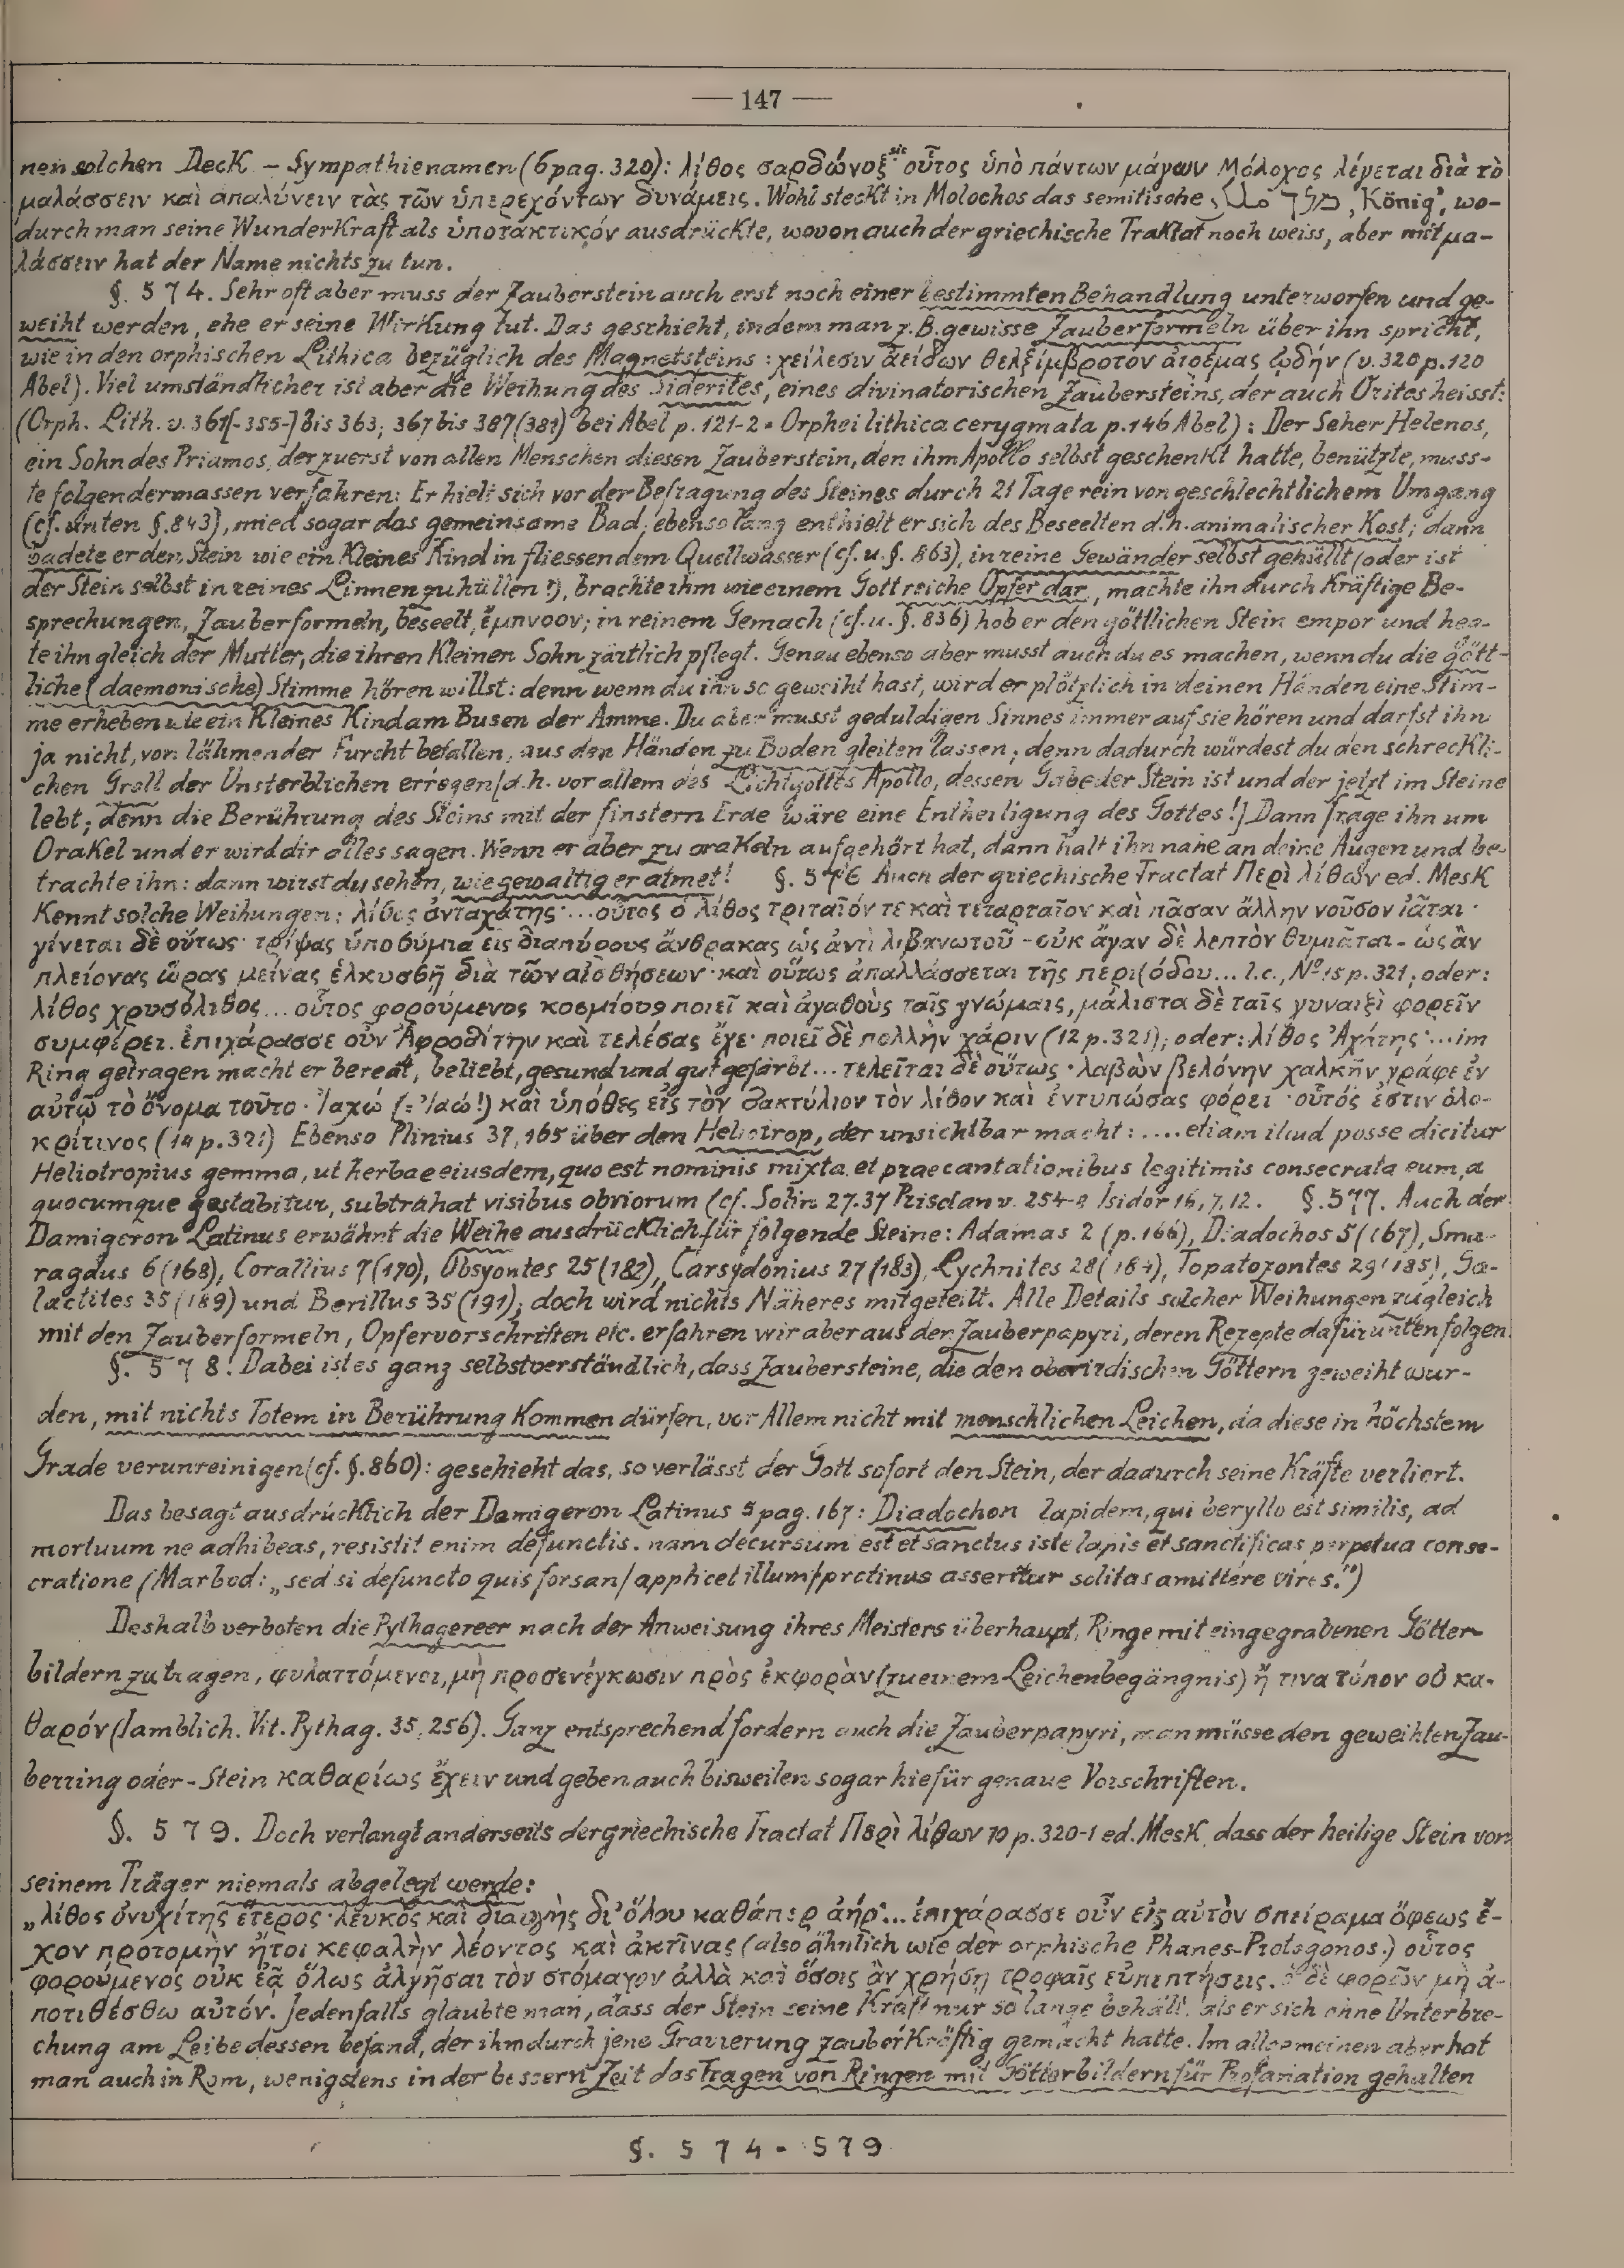 — 147 —
nen solchen Deck – Sympathienamen (6 pag. 320): λίθος σαρδώνοξ sic οὗτος ὑπὸ πάντων μάγων Μόλοχος λέγεται διὰ τὸ
μαλάσσειν καὶ απαλύνειν τὰς τῶν ὑπερεχόντων δυνάμεις. Wohl steckt in Molochos das semitische מלך ‚König', wo-
durch man seine Wunderkraft als ὑποτακτικόν ausdrückte, wovon auch der griechische Traktat noch weiss, aber mit μα-
λάσσειν hat der Name nichts zu tun.
§. 574. Sehr oft aber muss der Zauberstein auch erst noch einer bestimmten Behandlung unterworfen und ge-
weiht werden, ehe er seine Wirkung tut. Das geschieht, indem man z.B. gewisse Zauberformeln über ihn spricht,
wie in den orphischen Lithica bezüglich des Magnetsteins: χείλεσιν ἀείδων θελξίμβροτον ἀτρέμας ᾠδήν (v. 320 p. 120
Abel). Viel umständlicher ist aber die Weihung des Siderites, eines divinatorischen Zaubersteins, der auch Orites heisst:
(Orph. Lith. v. 361[-355-] bis 363; 367 bis 387 (381) bei Abel p. 121-2 = Orphei lithica cerygmata p. 146 Abel): Der Seher Helenos,
ein Sohn des Priamos, der zuerst von allen Menschen diesen Zauberstein, den ihm Apollo selbst geschenkt hatte, benützte, muss-
te folgendermassen verfahren: Er hielt sich vor der Befragung des Steines durch 21 Tage rein von geschlechtlichem Umgang
(cf. unten §. 843), mied sogar das gemeinsame Bad; ebenso lang enthielt er sich des Beseelten d.h. animalischer Kost; dann
badete er den Stein wie ein Kleines Kind in fliessendem Quellwasser (cf. u. §. 863), in reine Gewänder selbst gehüllt (oder ist
der Stein selbst in reines Linnen zu hüllen?), brachte ihm wie einem Gott reiche Opfer dar, machte ihn durch Kräftige Be-
sprechungen, Zauberformeln, beseelt, ἔμπνοον; in reinem Gemach (cf. u. §. 836) hob er den göttlichen Stein empor und heg-
te ihn gleich der Mutter, die ihren Kleinen Sohn zärtlich pflegt. Genau ebenso aber musst auch du es machen, wenn du die gött-
liche (daemonische) Stimme hören willst: denn wenn du ihn so geweiht hast, wird er plötzlich in deinen Händen eine Stim-
me erheben wie ein Kleines Kind am Busen der Amme. Du aber musst geduldigen Sinnes immer auf sie hören und darfst ihn
ja nicht, von lähmender Furcht befallen, aus den Händen zu Boden gleiten lassen; denn dadurch würdest du den schreckli-
chen Groll der Unsterblichen erregen [d.h. vor allem des Lichtgottes Apollo, dessen Gabe der Stein ist und der jetzt im Steine
lebt; denn die Berührung des Steins mit der finstern Erde wäre eine Entheiligung des Gottes!] Dann frage ihn um
Orakel und er wird dir alles sagen. Wenn er aber zu orakeln aufgehört hat, dann halt ihn nahe an deine Augen und be-
trachte ihn: dann wirst du sehen, wie gewaltig er atmet! §. 576 Auch der griechische Tractat Περὶ λίθων ed. Mesk
Kennt solche Weihungen: λίθος ἀνταχάτης ... οὗτος ὁ λίθος τριταῖόν τε καὶ τεταρταῖον καὶ πᾶσαν ἄλλην νοῦσον ἰᾶται·
γίνεται δὲ οὕτως· τρίψας ὑποθύμια εἰς διαπύρους ἄνθρακας ὡς ἀντὶ λιβανωτοῦ - οὐκ ἄγαν δὲ λεπτὸν θυμιᾶται - ὡς ἂν
πλείονας ὥρας μείνας ἑλκυσθῇ διὰ τῶν αἰσθήσεων· καὶ οὕτως ἀπαλλάσσεται τῆς περιόδου... l.c., Nº 15 p. 321; oder:
λίθος χρυσόλιθος... οὗτος φορούμενος κοσμίους ποιεῖ καὶ ἀγαθοὺς ταῖς γνώμαις, μάλιστα δὲ ταῖς γυναιξὶ φορεῖν
συμφέρει. ἐπιχάρασσε οὖν Ἀφροδίτην καὶ τελέσας ἔχε· ποιεῖ δὲ πολλὴν χάριν (12 p. 321); oder: λίθος Ἀχάτης ... im
Ring getragen macht er beredt, beliebt, gesund und gut gefärbt... τελεῖται δὲ οὕτως· λαβὼν βελόνην χαλκῆν γράφε ἐν
αὐτῷ τὸ ὄνομα τοῦτο· Ἰαχώ (= Ἰαώ!) καὶ ὑπόθες εἰς τὸν δακτύλιον τὸν λίθον καὶ ἐντυπώσας φόρει· οὗτός ἐστιν ὁλο-
κρίτινος (14 p. 321) Ebenso Plinius 37, 165 über den Heliotrop, der unsichtbar macht: .... etiam illud posse dicitur
Heliotropius gemma, ut herbae eiusdem, quo est nominis mixta et praecantationibus legitimis consecrata eum, a
quocumque gestabitur, subtrahat visibus obviorum (cf. Solin 27.37 Priscian v. 254-8 Isidor 16, 7, 12. §. 577. Auch der
Damigeron Latinus erwähnt die Weihe ausdrücklich für folgende Steine: Adamas 2 (p. 166), Diadochos 5 (167), Sma-
ragdus 6 (168), Corallius 7 (170), Obsyontes 25 (182), Carsydonius 27 (183), Lychnites 28 (184), Topatozontes 29 (185), Ga-
lactites 35 (189) und Berillus 35 (191); doch wird nichts Näheres mitgeteilt. Alle Details solcher Weihungen zugleich
mit den Zauberformeln, Opfervorschriften etc. erfahren wir aber aus den Zauberpapyri, deren Rezepte dafür unten folgen
§. 578. Dabei ist es ganz selbstverständlich, dass Zaubersteine, die den oberirdischen Göttern geweiht wur-
den, mit nichts Totem in Berührung Kommen dürfen, vor Allem nicht mit menschlichen Leichen, da diese in höchstem
Grade verunreinigen (cf. §. 860): geschieht das, so verlässt der Gott sofort den Stein, der dadurch seine Kräfte verliert.
Das besagt ausdrücklich der Damigeron Latinus 5 pag. 167: Diadochon lapidem, qui beryllo est similis, ad
mortuum ne adhibeas, resistit enim defunctis. nam decursum est et sanctus iste lapis et sanctificas perpetua conse-
cratione (Marbod: „sed si defuncto quis forsan / applicet illum / protinus asseritur solitas amittere vires.")
Deshalb verboten die Pythagereer nach der Anweisung ihres Meisters überhaupt, Ringe mit eingegrabenen Götter-
bildern zu tragen, φυλαττόμενοι, μὴ προσενέγκωσιν πρὸς ἐκφορὰν (zu einem Leichenbegängnis) ἤ τινα τόπον οὐ κα-
θαρόν (Iamblich. Vit. Pythag. 35, 256). Ganz entsprechend fordern auch die Zauberpapyri, man müsse den geweihten Zau-
berring oder - Stein καθαρίως ἔχειν und geben auch bisweilen sogar hiefür genaue Vorschriften.
§. 579. Doch verlangt anderseits der griechische Tractat Περὶ λίθων 10 p. 320-1 ed. Mesk, dass der heilige Stein von
seinem Träger niemals abgelegt werde:
„λίθος ὀνυχίτης ἕτερος· λευκὸς καὶ διαυγὴς δι' ὅλου καθάπερ ἀήρ ... ἐπιχάρασσε οὖν εἰς αὐτὸν σπείραμα ὄφεως ἔ-
χον προτομὴν ἤτοι κεφαλὴν λέοντος καὶ ἀκτῖνας (also ähnlich wie der orphische Phanes-Protogonos.) οὗτος
φορούμενος οὐκ ἐᾷ ὅλως ἀλγῆσαι τὸν στόμαχον ἀλλὰ καὶ ὅσοις ἂν χρήσῃ τροφαῖς εὐπεπτήσεις. ὁ δὲ φορῶν μὴ ἀ-
ποτιθέσθω αὐτόν. Jedenfalls glaubte man, dass der Stein seine Kraft nur so lange behält, als er sich ohne Unterbre-
chung am Leibe dessen befand, der ihm durch jene Gravierung zauberkräftig gemacht hatte. Im allgemeinen aber hat
man auch in Rom, wenigstens in der bessern Zeit das Tragen von Ringen mit Götterbildern für Profanation gehalten
§. 574 - 579